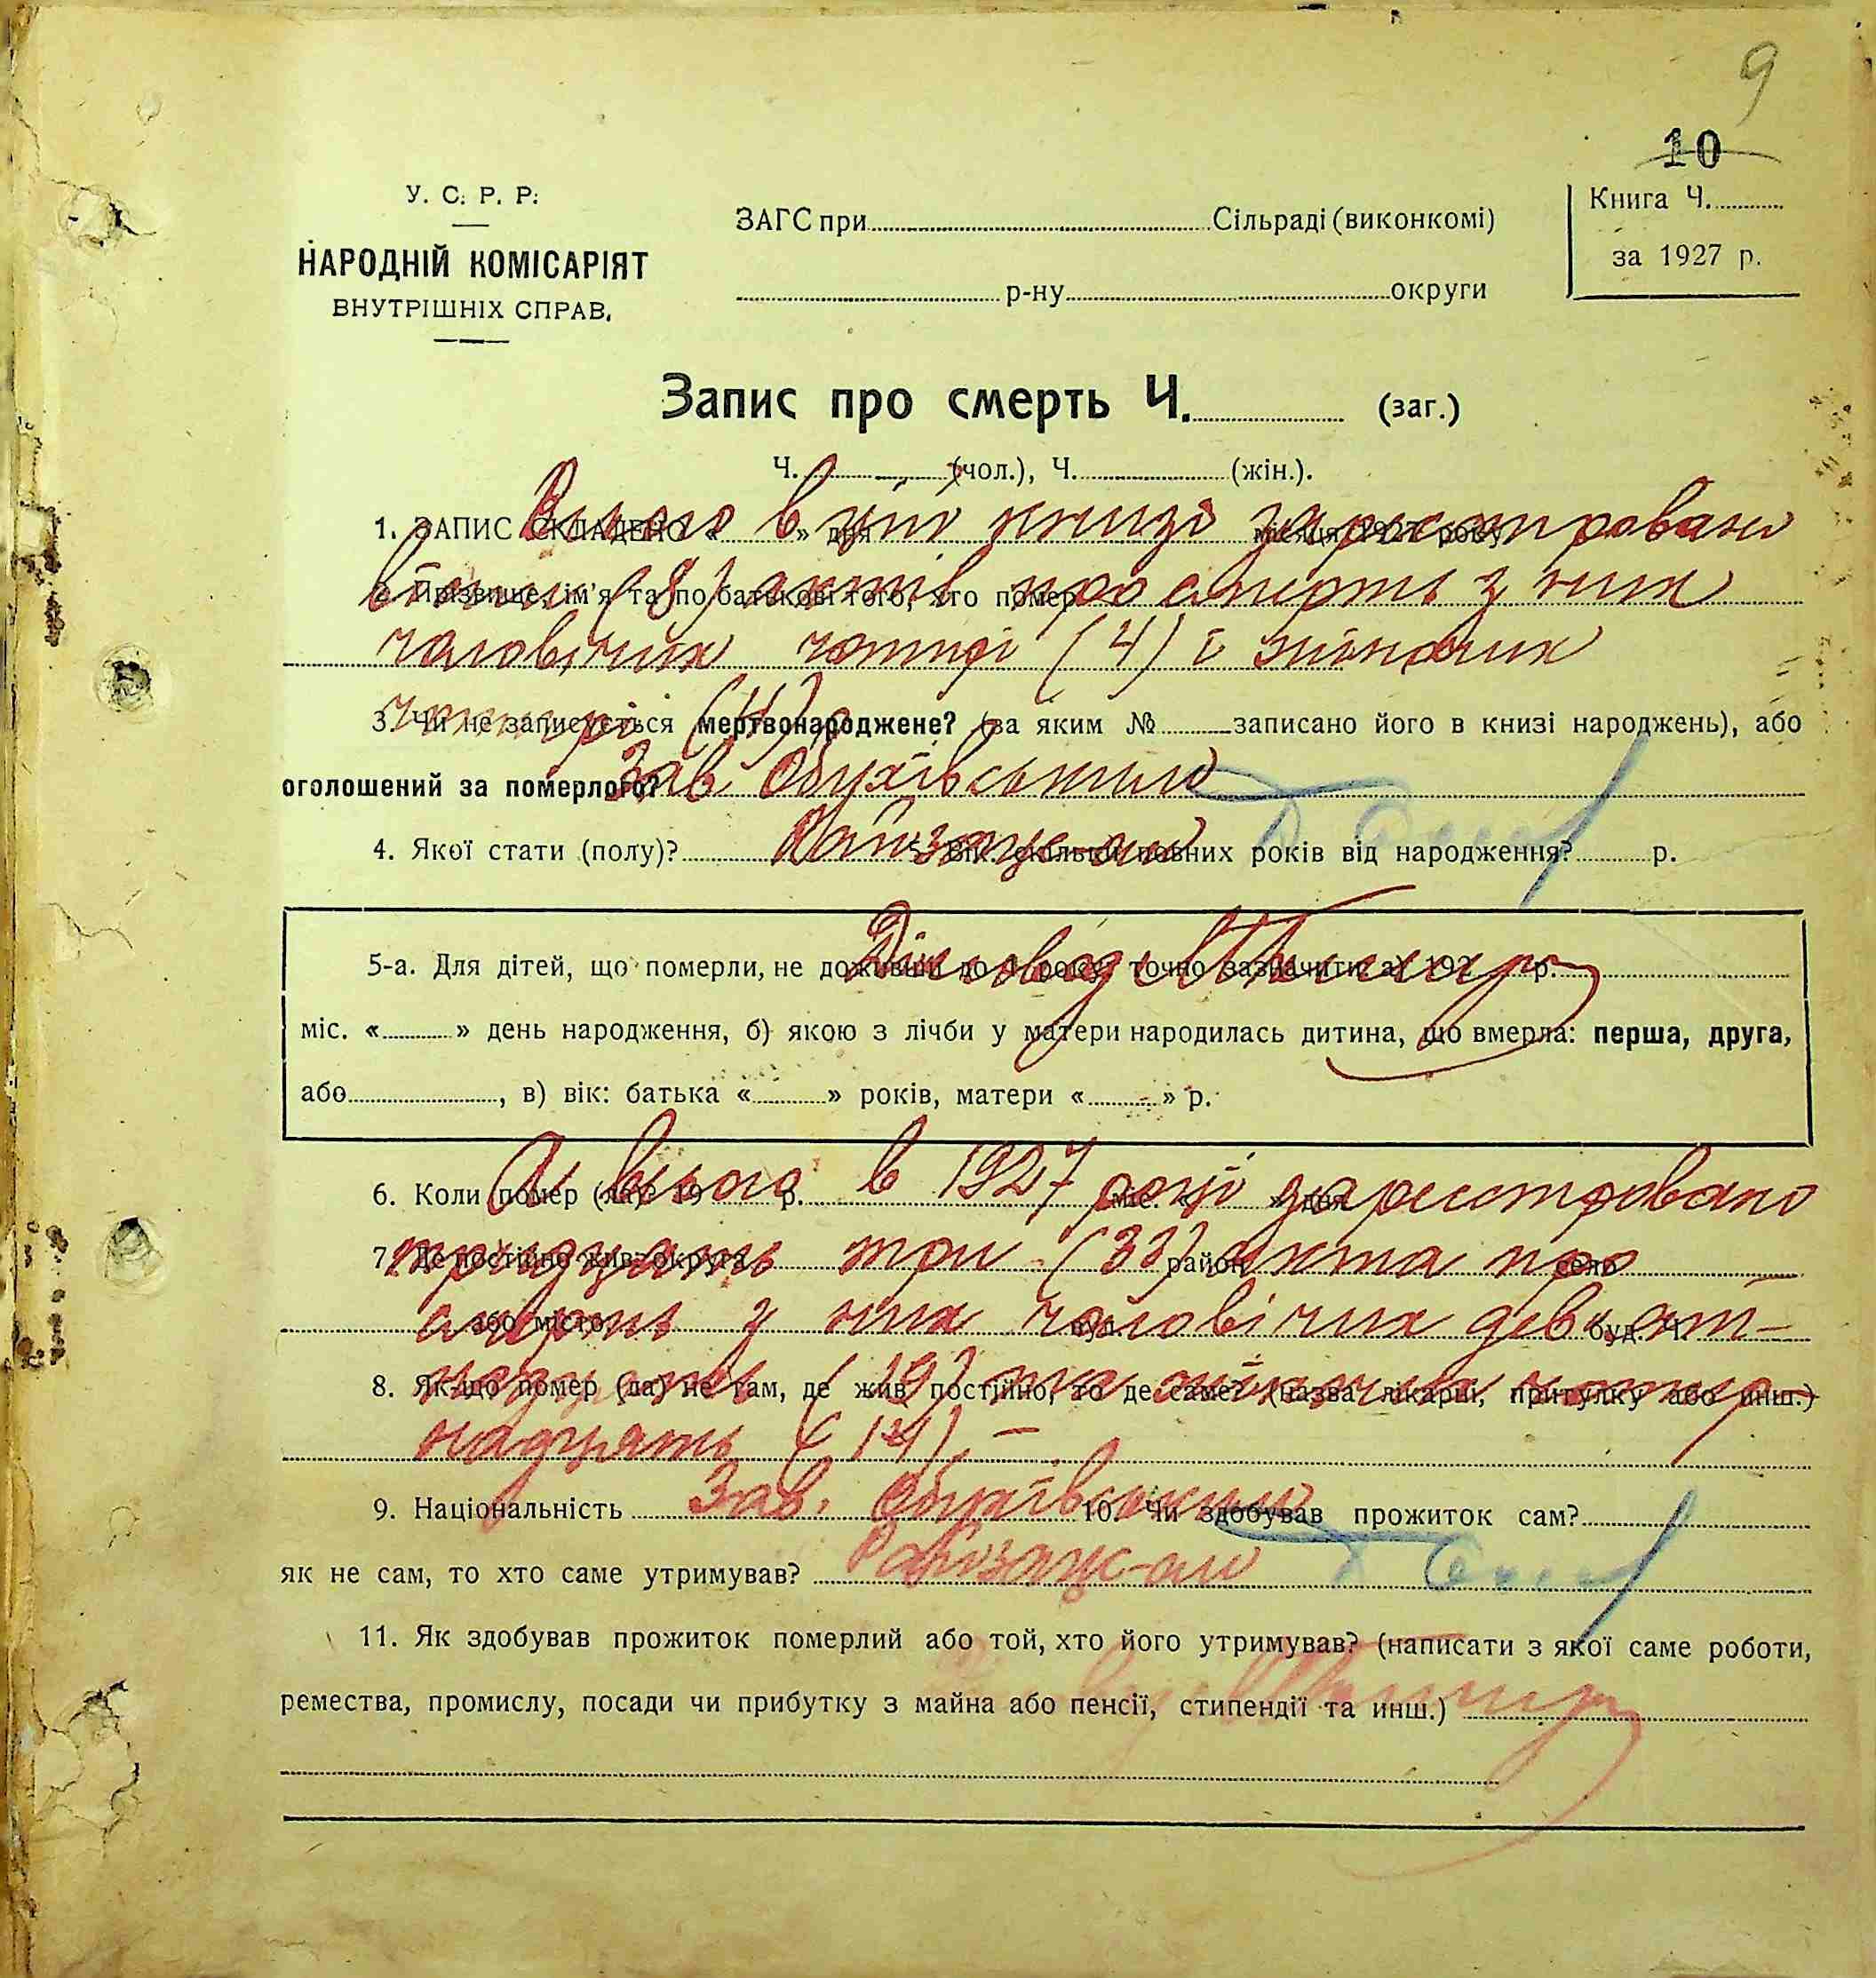 9
10
У. С. Р. Р.
НАРОДНІЙ КОМІСАРІЯТ
ВНУТРІШНІХ СПРАВ.
ЗАГС при Сільраді (виконкомі)
р-ну округи
Книга Ч.
за 1927 р.
Запис про смерть Ч. (заг.)
Ч. (чол.), Ч. (жін.).
Всього в цій книзі зареєстровано
1. ЗАПИС СКЛАДЕНО « » дня місяця 1927 року
вісім (8) актів про смерть з них
2. Прізвище, ім'я та по батькові того, хто помер
чоловічих чотирі (4) і жіночих
чотирі (4)
3. Чи не записується мертвонароджене? (за яким № записано його в книзі народжень), або
Зав Обухівським
оголошений за померлого?
Райзагс-ом
4. Якої стати (полу)? 5. Вік: скільки повних років від народження? р.
Діловод
5-а. Для дітей, що померли, не доживши до 1 року, точно зазначити: а) 192 р.
міс. « » день народження, б) якою з лічби у матери народилась дитина, що вмерла: перша, друга,
або , в) вік: батька « » років, матери « » р.
А всього в 1927 році зареєстровано
6. Коли помер (ла)? 19 р. міс. « » дня
тридцять три (33) акта про
7. Де постійно жив: округа район село
смерть з них чоловічих девят-
або місто вул. буд. Ч.
надцять (19) та жіночих чотир-
8. Як-що помер (ла) не там, де жив постійно, то де саме? (назва лікарні, притулку або инш.)
надцять (14). —
Зав. Обухівським
9. Національність 10. Чи здобував прожиток сам?
Райзагс-ом
як не сам, то хто саме утримував?
11. Як здобував прожиток померлий або той, хто його утримував? (написати з якої саме роботи,
ремества, промислу, посади чи прибутку з майна або пенсії, стипендії та инш.)